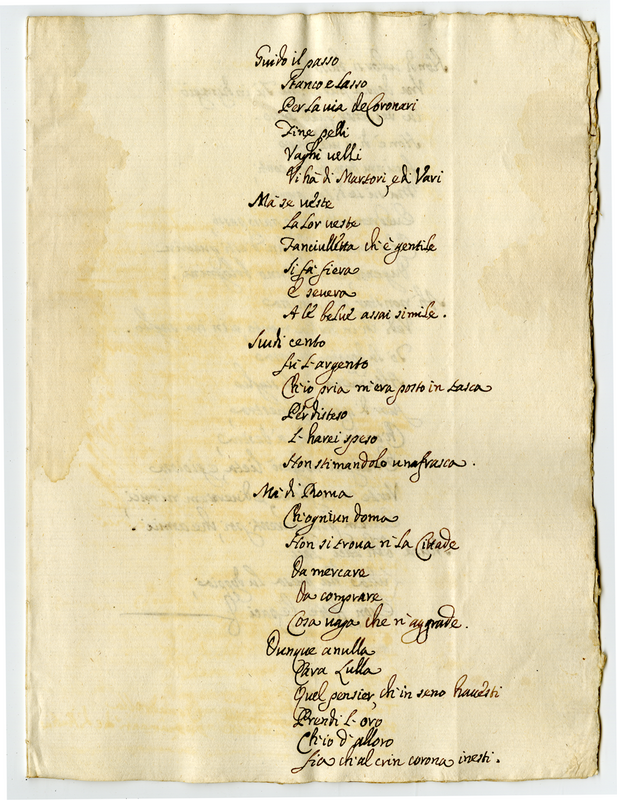 Guido il passo
Stanco e Lasso
Per la uia de Coronari
Fine pelli
Vaghi uelli
Vi hà di Martori, e di Vari
Mà se ueste
La Lor ueste
Fanciulletta ch'è gentile
Si fà fiera
E seuera
A le belue assai simile.
Scudi cento
fù l'argento
Ch'io pria m'era posto in tasca
Per disteso
L'harei speso
Non stimandolo una frasca.
Mà di Roma
Ch'ogniun doma
Non si troua n' la Cittade
Da mercare
Da comprare
Cosa uaga che n' aggrade.
Dunque anulla
Cara Lulla
Quel pensier, ch'in seno hauesti
Prendi l'oro
Ch'io d'alloro
fia ch'al crin corona inesti.